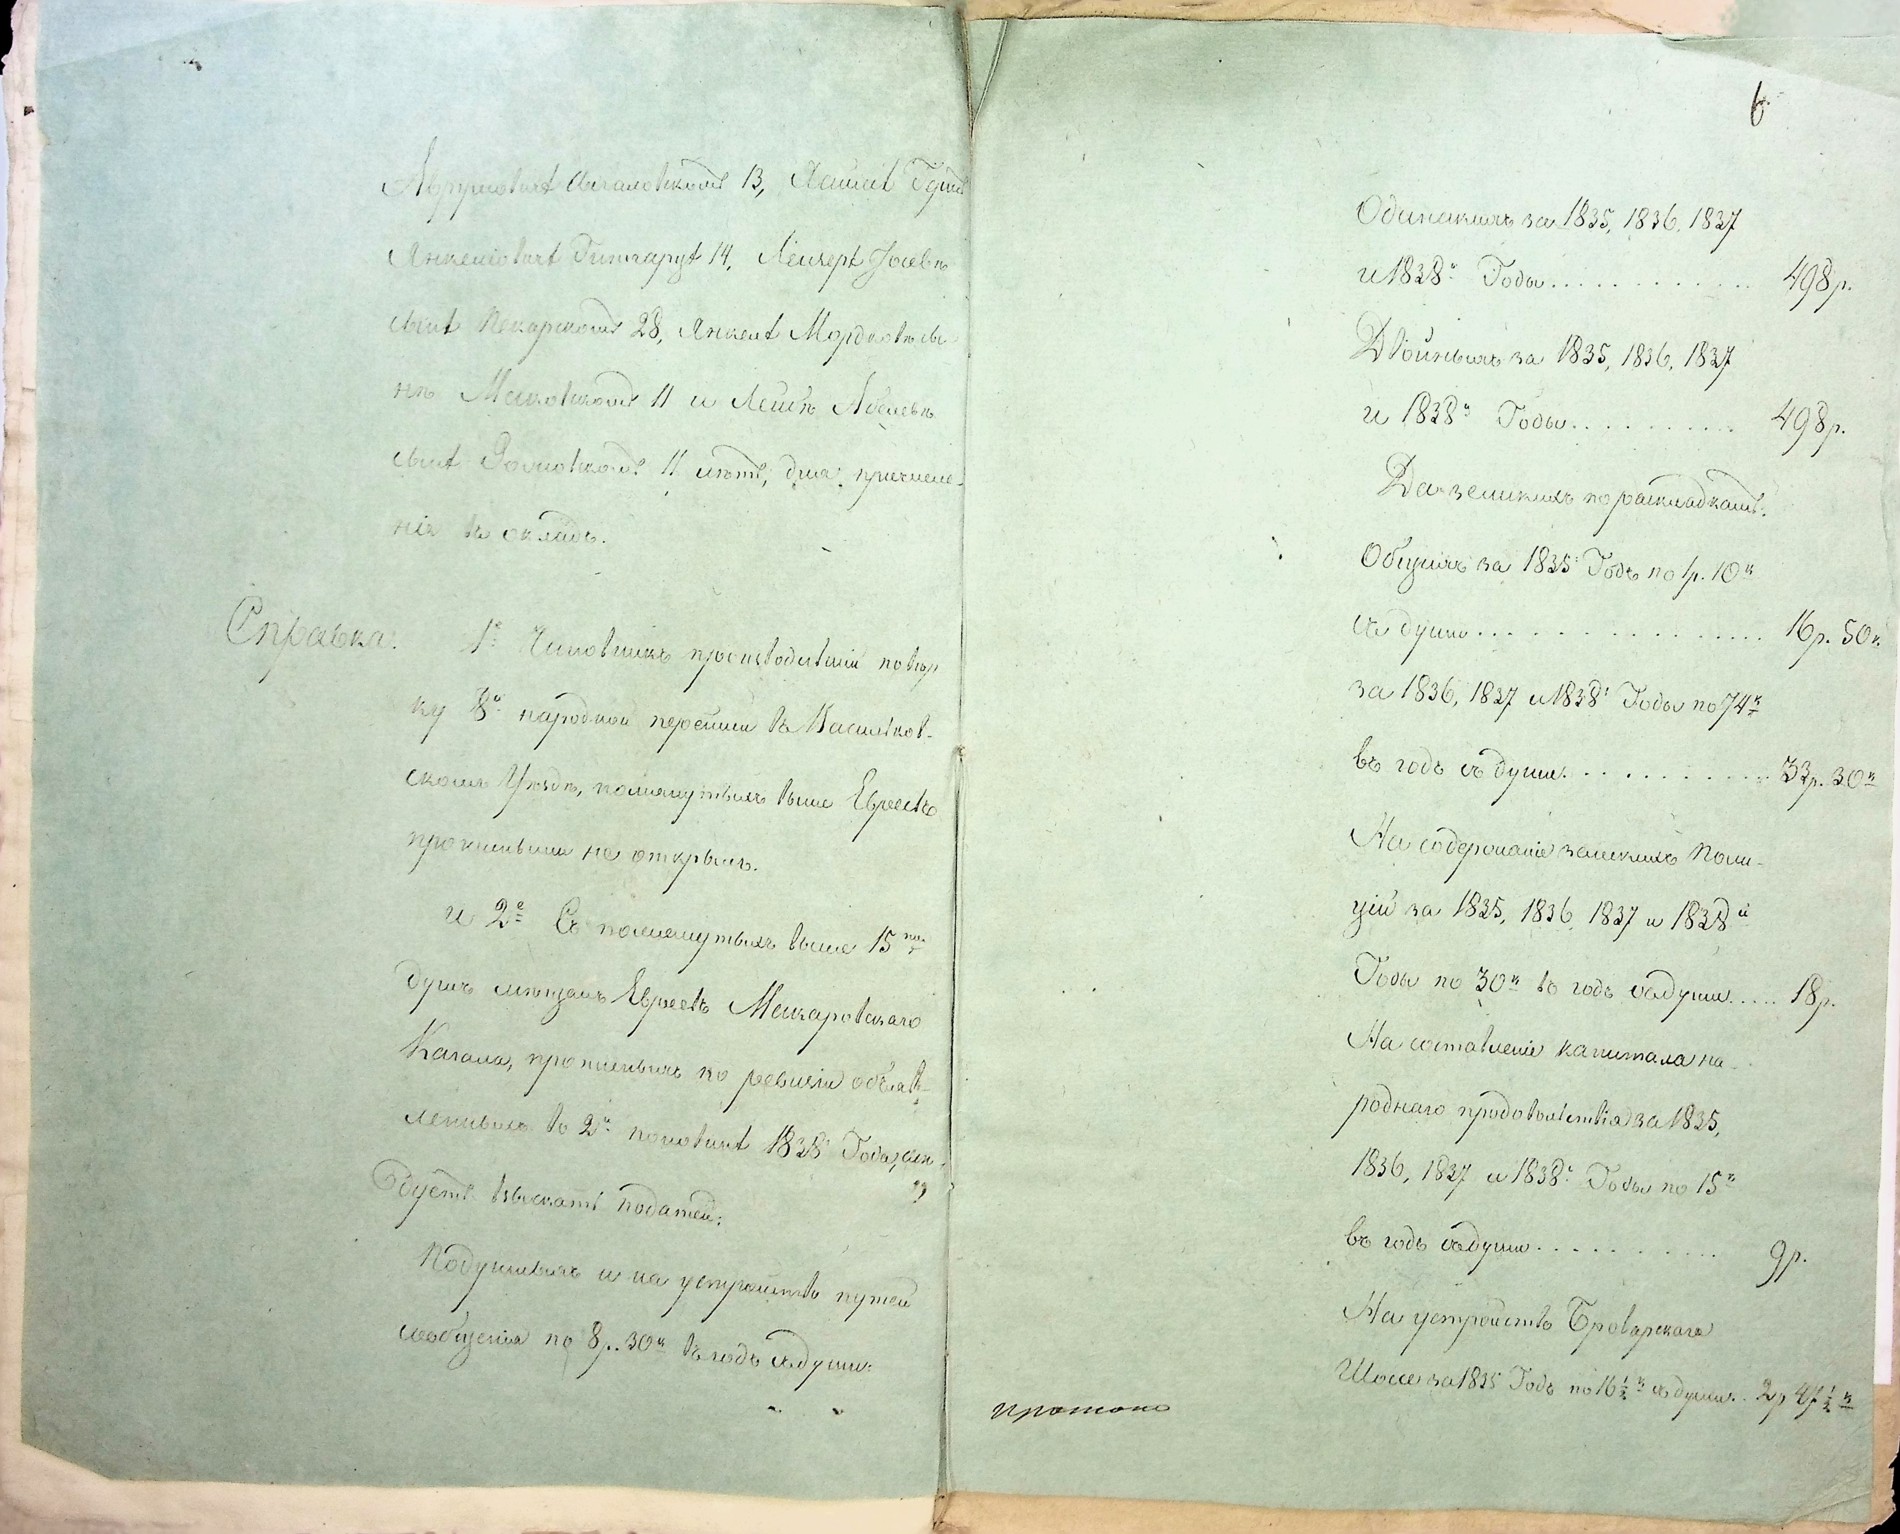 13,
Янкеліовичѣ 14, Лейзерѣ Іосевѣ
сынѣ Пекарскомъ 28, Янкелѣ Мордковѣ сы-
нѣ 11 и Лейбѣ Абелевѣ
сынѣ 11 лѣтъ, для причисле-
нія въ окладъ.
Справка. 1е Чиновникъ производившій повѣр
ку 8й народной переписи въ Васильков-
скомъ Уѣздѣ, помянутыхъ выше Евреевъ
прописными не открылъ.
и 2е Съ помянутыхъ выше 15ти
душъ мѣщанъ Евреевъ Макаровскаго
Кагала, прописныхъ по ревизіи объяв-
ленныхъ во 2й половинѣ 1838 Года, слѣ-
дуетъ взыскать податей:
Подушныхъ и на устройство путей
сообщенія по 8р. 30к въ годъ съ души:
6
Одинакихъ за 1835, 1836, 1837
и 1838й Годы............ 498р.
Двойныхъ за 1835, 1836, 1837
и 1838й Годы.......... 498р.
Да земскихъ по раскладкамъ:
Общихъ за 1835 Годъ по 1р. 10к
съ души................. 16р. 50к
за 1836, 1837 и 1838й Годы по 74к
въ годъ съ души........... 33р. 30к
На содержаніе земскихъ Поли-
цій за 1835, 1836, 1837 и 1838й
Годы по 30к въ годъ съ души..... 18р.
На составленіе капитала на-
роднаго продовольствія за 1835,
1836, 1837 и 1838й Годы по 15к
въ годъ съ души........... 9р.
На устройство Броварскаго
Шоссе за 1835 Годъ по 16½к съ души.. 2р 47½к